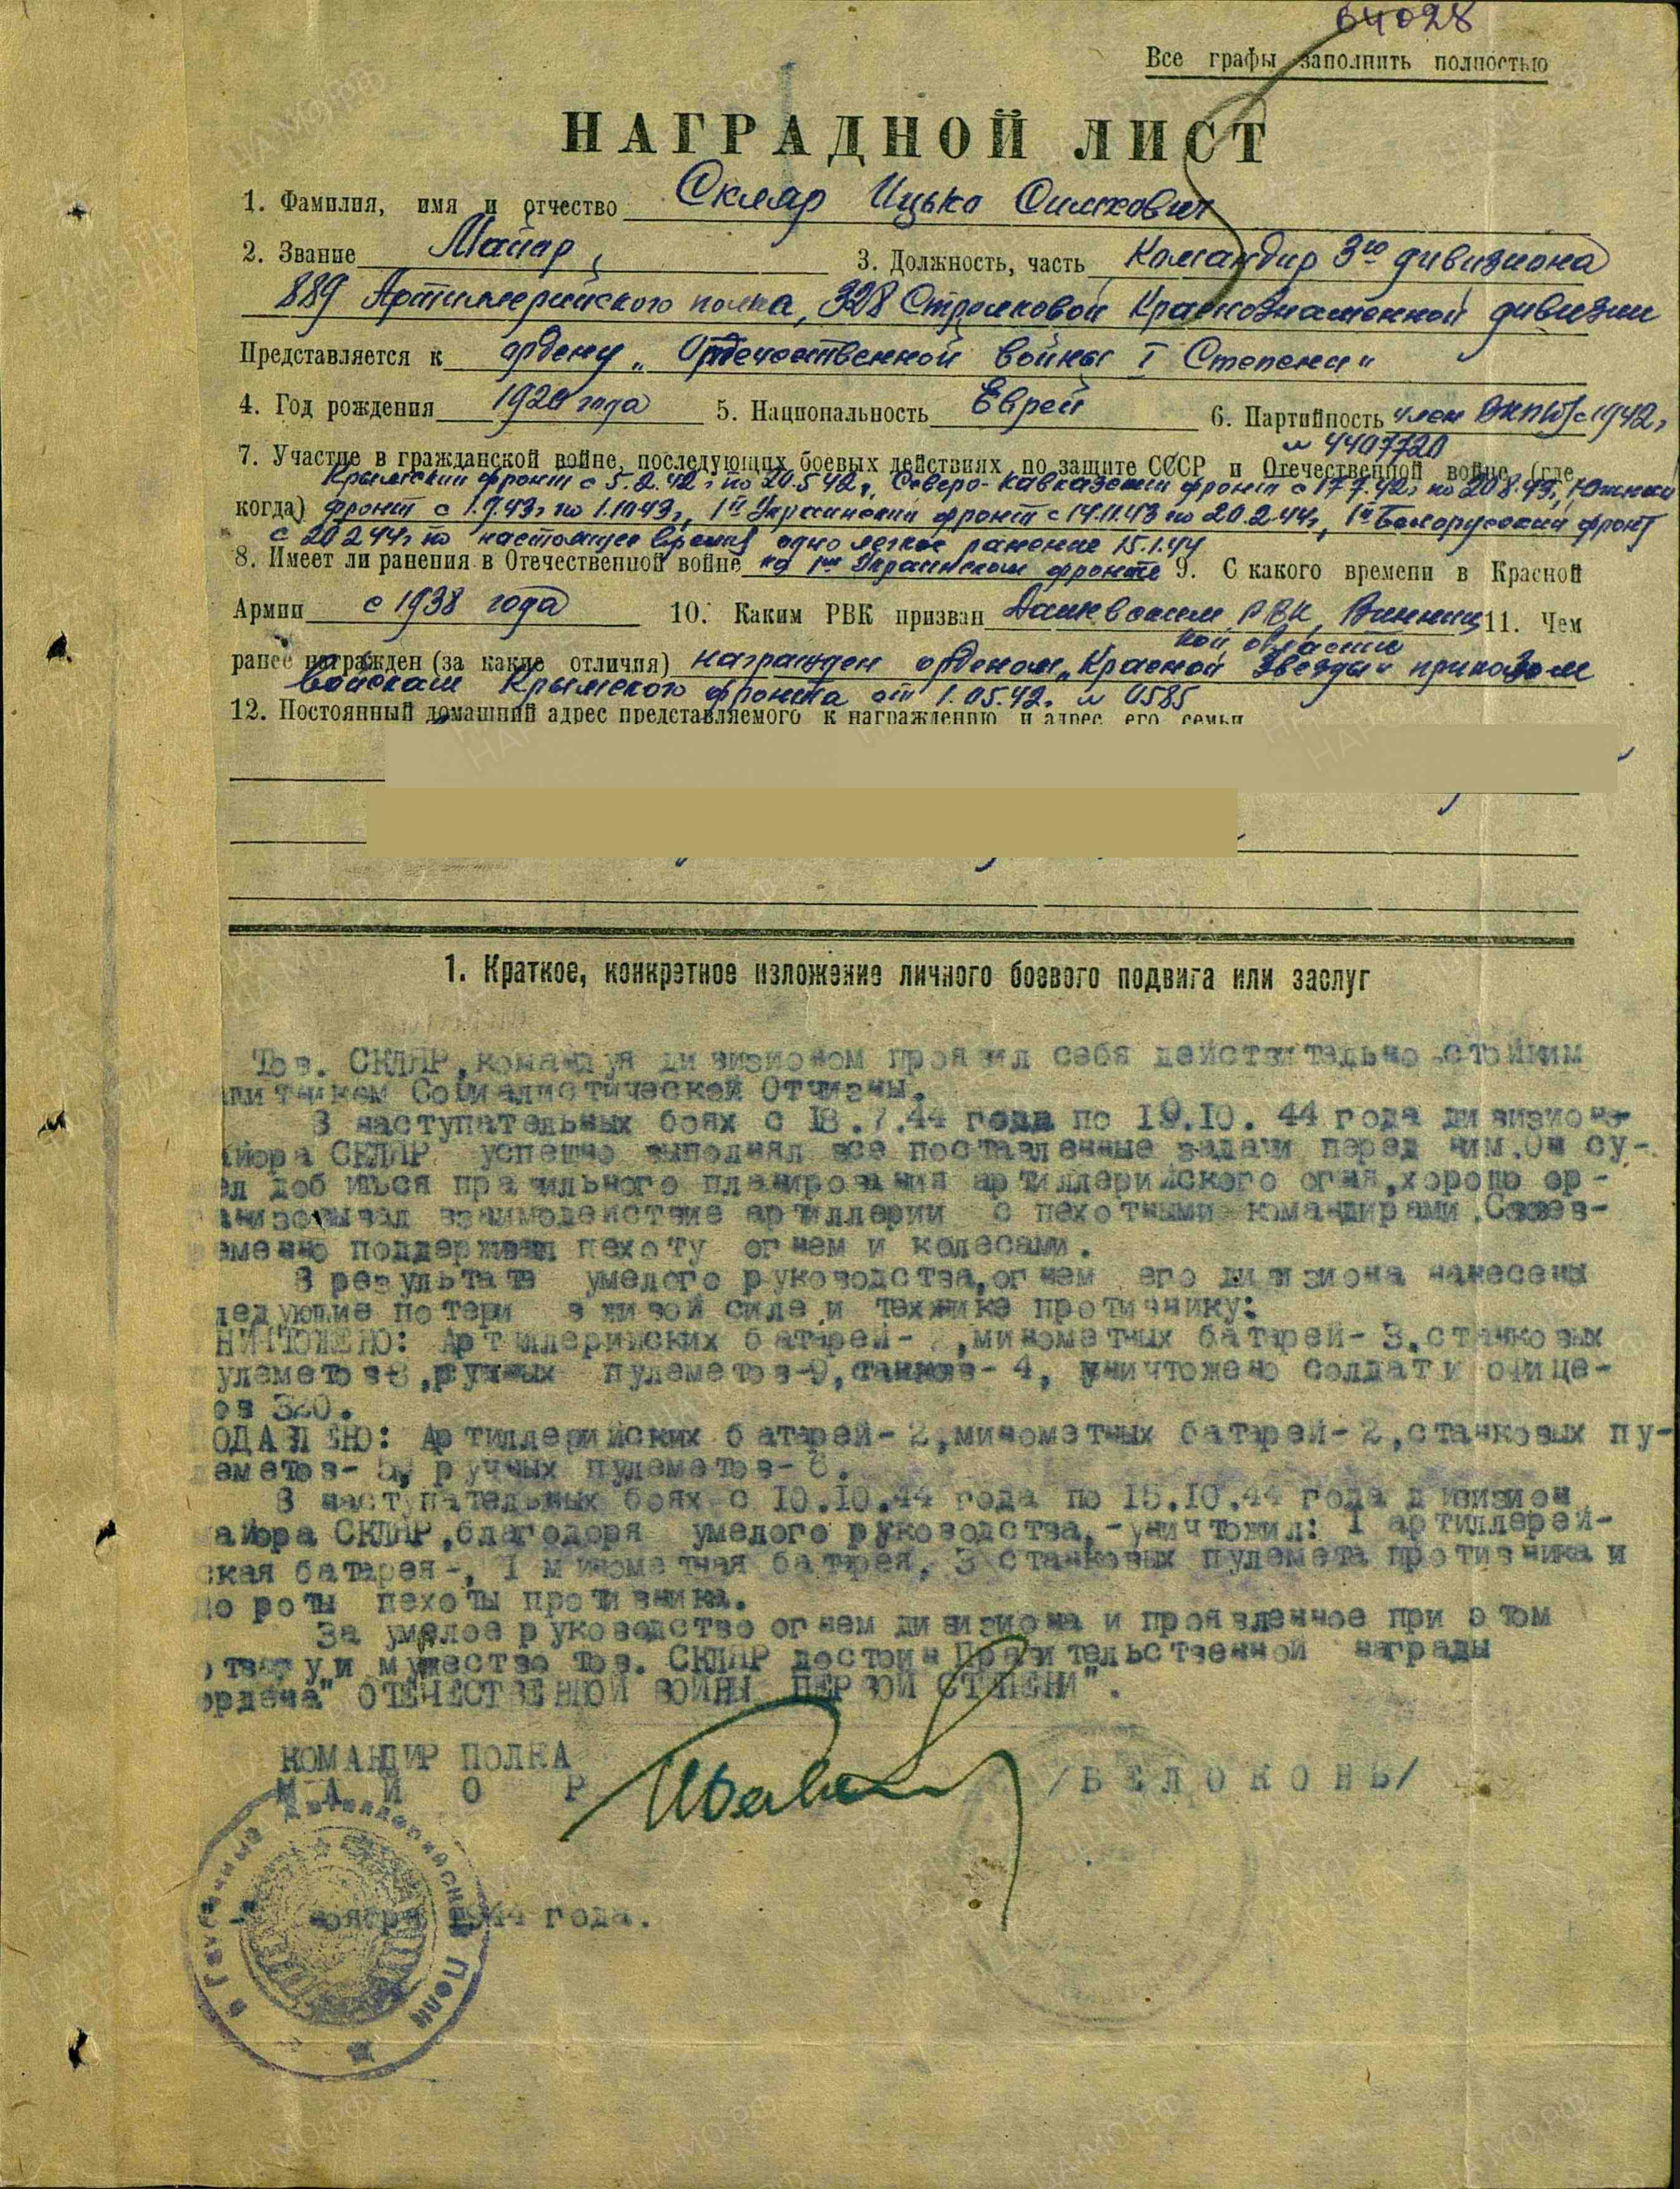 64028
Все графы заполнить полностью
НАГРАДНОЙ ЛИСТ
1. Фамилия, имя и отчество Скляр Ицько Симхович
2. Звание Майор, 3. Должность, часть Командир 3го дивизиона
889 Артиллерийского полка, 328 Стрелковой Краснознаменной дивизии
Представляется к ордену „Отечественной войны I Степени"
4. Год рождения 1920 года 5. Национальность Еврей 6. Партийность член ВКП(б) с 1942г
№ 4407720
7. Участие в гражданской войне, последующих боевых действиях по защите СССР и Отечественной войне (где,
Крымский фронт с 5.2.42г по 20.5.42г, Северо-Кавказский фронт с 17.7.42г по 20.8.43г, Южный
когда) фронт с 1.9.43г по 1.10.43г, 1й Украинский фронт с 14.11.43 по 20.2.44г, 1й Белорусский фронт
с 20.2.44г по настоящее время одно легкое ранение 15.1.44
8. Имеет ли ранения в Отечественной войне на 1ом Украинском фронте 9. С какого времени в Красной
Армии с 1938 года 10. Каким РВК призван РВК, Винниц 11. Чем
кой области
ранее награжден (за какие отличия) награжден орденом „Красной Звезды" приказом
войскам Крымского фронта от 1.05.42г № 0585
12. Постоянный домашний адрес представляемого к награждению и адрес его семьи
1. Краткое, конкретное изложение личного боевого подвига или заслуг
Тов. СКЛЯР, командуя дивизионом проявил себя действительно стойким
щитником Социалистической Отчизны.
В наступательных боях с 18.7.44 года по 19.10.44 года дивизион
айора СКЛЯР успешно выполнял все поставленные задачи перед ним. Он су-
ел добиться правильного планирования артиллерийского огня, хорошо ор-
анизовывал взаимодействие артиллерии с пехотными командирами. Своев-
еменно поддерживал пехоту огнем и колесами.
В результате умелого руководства, огнем его дивизиона нанесены
ледующие потери в живой силе и технике противнику:
НИЧТОЖЕНО: Артиллерийских батарей- 2, минометных батарей- 3, станковых
улеметов-8, ручных пулеметов-9, танков- 4, уничтожено солдат и офице-
ов 320.
ОДАВЛЕНО: Артиллерийских батарей- 2, минометных батарей- 2, станковых пу-
еметов- 5, ручных пулеметов- 6.
В наступательных боях с 10.10.44 года по 15.10.44 года дивизион
айора СКЛЯР, благодоря умелого руководства, -уничтожил: 1 артиллерей-
ская батарея-, 1 минометная батарея, 3 станковых пулемета противника и
до роты пехоты противника.
За умелое руководство огнем дивизиона и проявленное при этом
отвагу и мужество тов. СКЛЯР достоин Правительственной награды
ордена" ОТЕЧЕСТВЕННОЙ ВОЙНЫ ПЕРВОЙ СТЕПЕНИ".
КОМАНДИР ПОЛКА
МАЙОР /БЕЛОКОНЬ/
"-" ноября 1944 года.